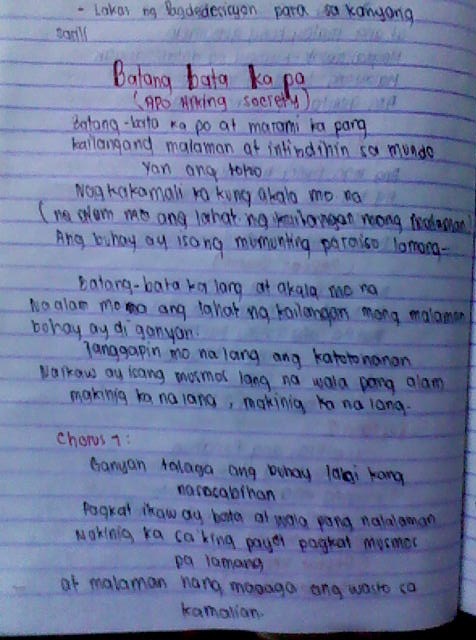 - Lakas ng Pagdedesisyon para sa kanyang
sarili
Batang bata ka pa
(APO Hiking society)
Batang-bata ka pa at marami ka pang
kailangang malaman at intindihin sa mundo
Yan ang totoo
Nagkakamali ka kung akala mo na
(na alam mo ang lahat ng kailangan mong malaman
Ang buhay ay isang mumunting paraiso lamang-
Batang-bata ka lang at akala mo na
Na alam mo na ang lahat ng kailangan mong malaman
buhay ay di ganyan.
Tanggapin mo na lang ang katotohanan
Na ikaw ay isang musmos lang na wala pang alam
makinig ka na lang, makinig ka na lang.
Chorus 1:
Ganyan talaga ang buhay lagi kang
nasasabihan
Pagkat ikaw ay bata at wala pang nalalaman
Makinig ka sa 'king payo pagkat musmos
pa lamang
at malaman nang maaga ang wasto sa
kamalian.